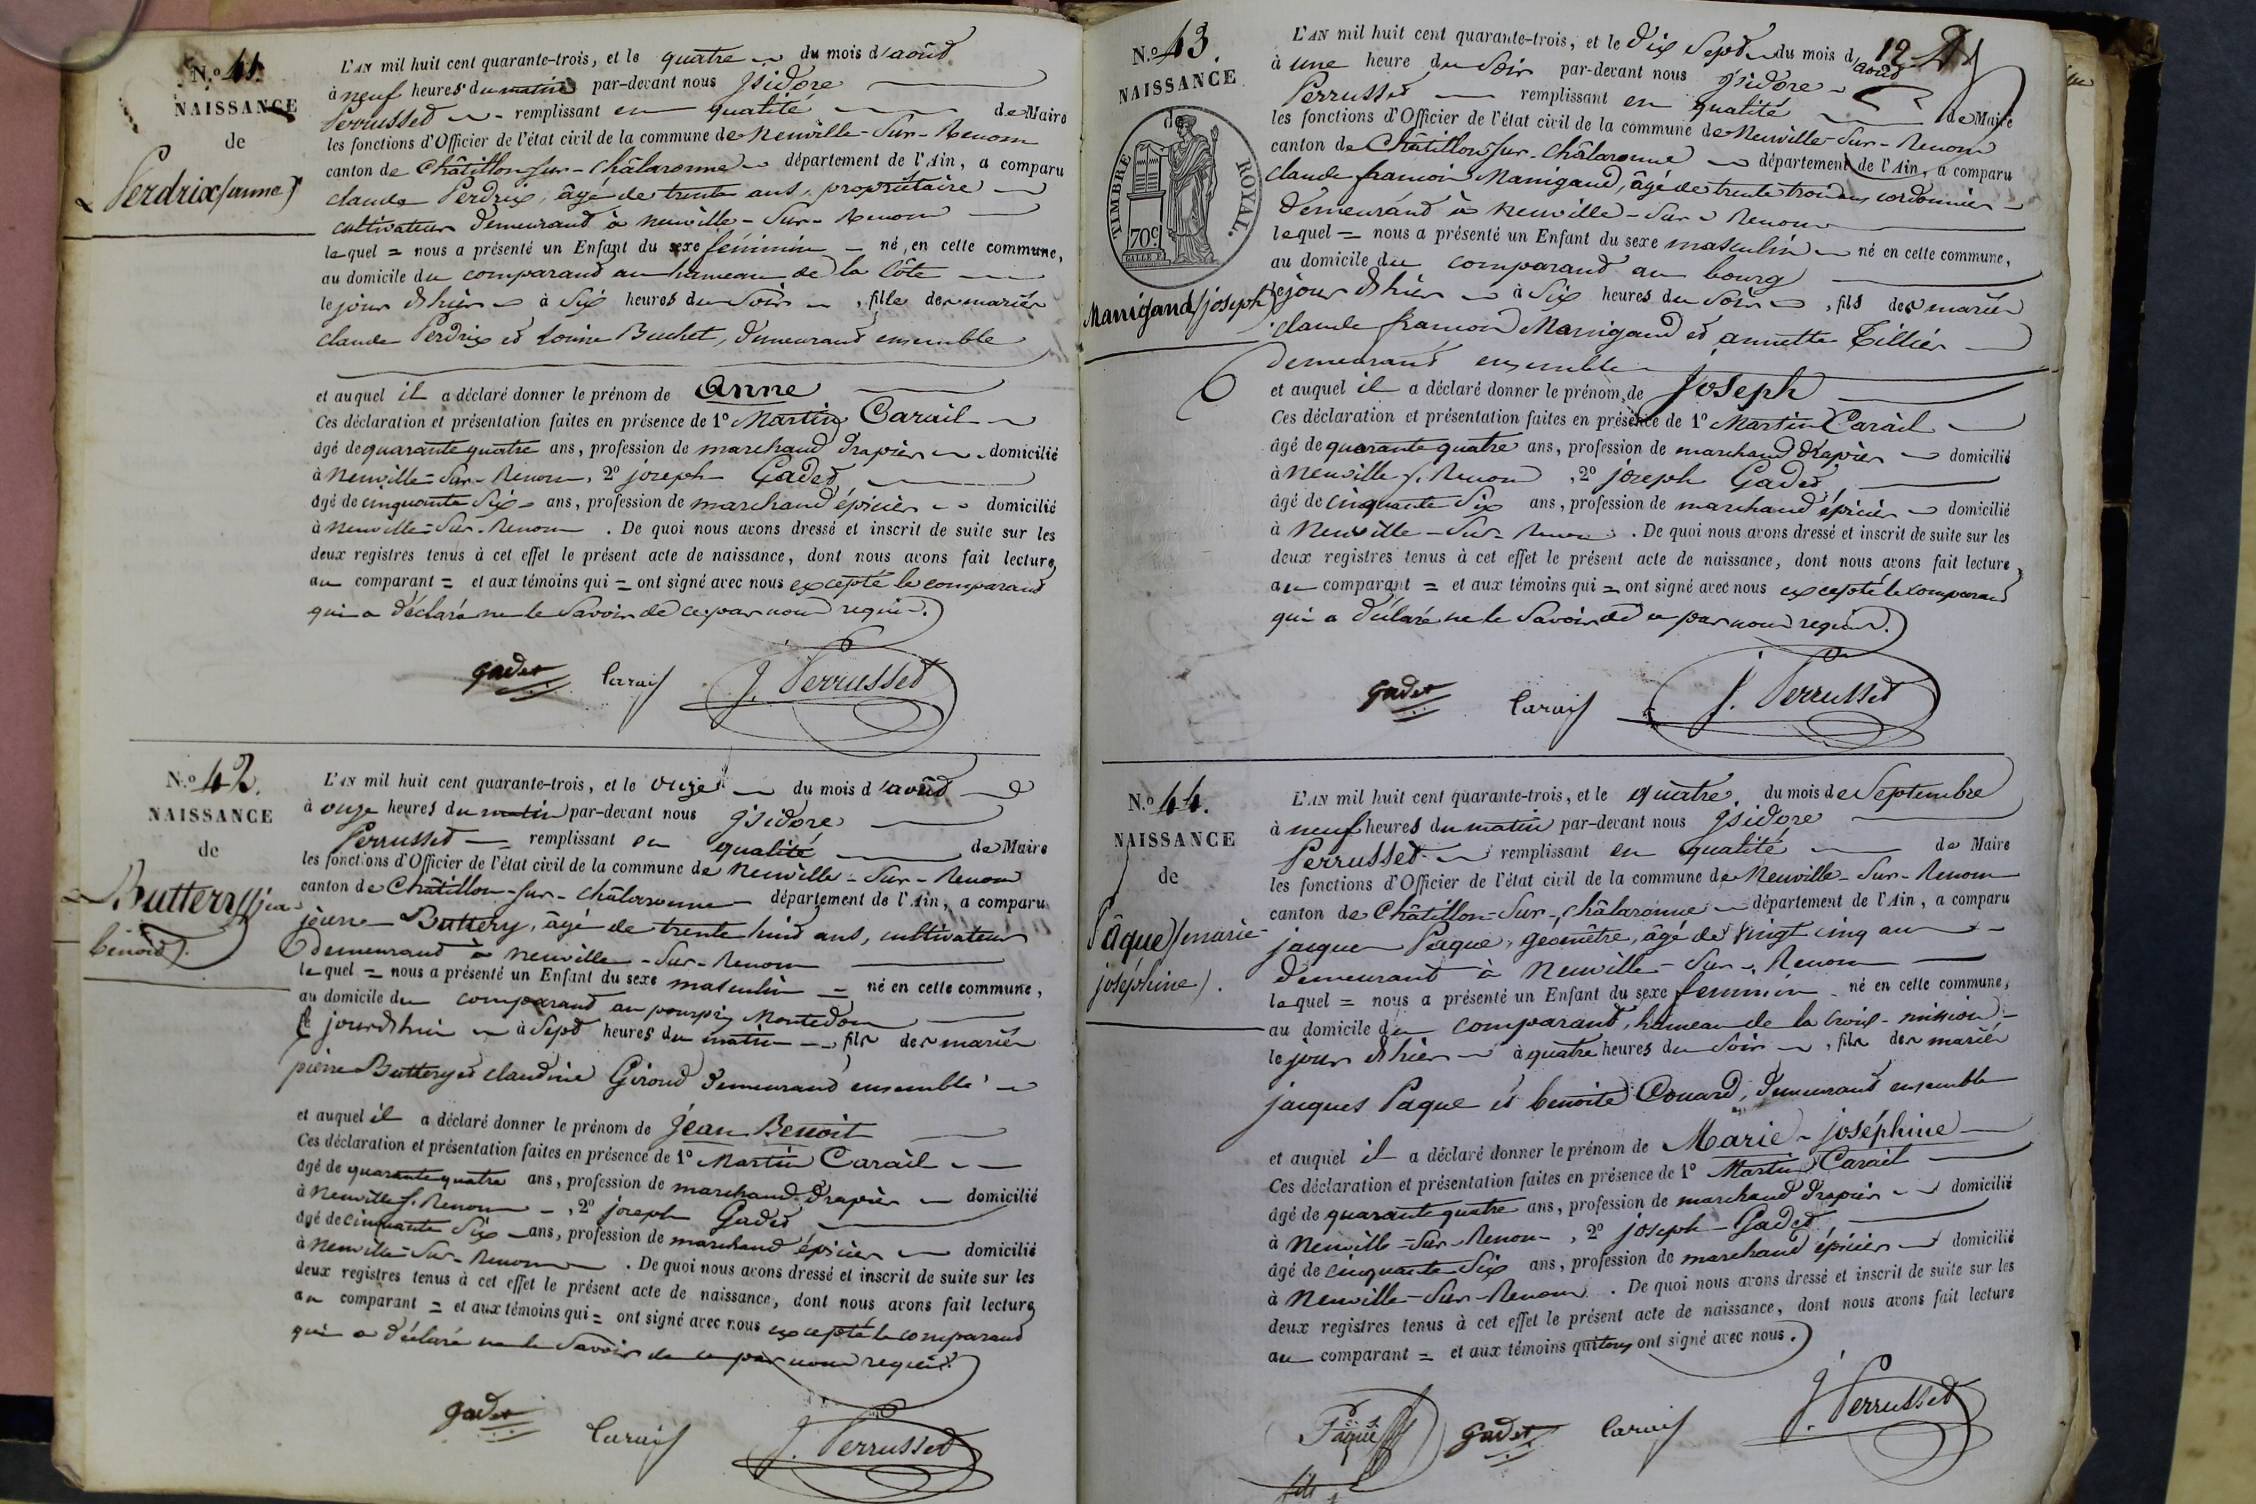 N.º 41.
NAISSANCE
de
Perdrix (anne)
L'AN mil huit cent quarante-trois, et le quatre du mois d'août
à neuf heures du matin par-devant nous Isidore
Perrusset remplissant en qualité de Maire
les fonctions d'Officier de l'état civil de la commune de Neuville-Sur-Renom
canton de Châtillon-sur-Châlaronne département de l'Ain, a comparu
claude Perdrix, âgé de trente ans, propriétaire
cultivateur demeurand à neuville-Sur-Renom
lequel = nous a présenté un Enfant du sexe féminin né en cette commune,
au domicile du comparand au hameau de la Côte
le jour d'hier à Six heures du Soir, fille des mariés
claude Perdrix et Louise Buchet, demeurand ensemble
et auquel il a déclaré donner le prénom de Anne
Ces déclaration et présentation faites en présence de 1º Martin Carail
âgé de quarante quatre ans, profession de marchand drapier domicilié
à Neuville-Sur-Renom, 2º joseph Gadet
âgé de cinquante Six ans, profession de marchand épicier domicilié
à Neuville-Sur-Renom. De quoi nous avons dressé et inscrit de suite sur les
deux registres tenus à cet effet le présent acte de naissance, dont nous avons fait lecture
au comparant = et aux témoins qui = ont signé avec nous excepté le comparand
qui a déclaré ne le Savoir de ce par nous requis.
gadet Carail J. Perrusset
N.º 42.
NAISSANCE
de
Buttery (jean
benoit).
L'AN mil huit cent quarante-trois, et le onze du mois d'août
à onze heures du matin par-devant nous Isidore
Perrusset remplissant en qualité de Maire
les fonctions d'Officier de l'état civil de la commune de Neuville-Sur-Renom
canton de Châtillon-sur-Châlaronne département de l'Ain, a comparu
pierre Buttery, âgé de trente huit ans, cultivateur
demeurand à neuville-Sur-Renom
lequel = nous a présenté un Enfant du sexe masculin = né en cette commune,
au domicile du comparand au pourpris Montedon
le jourd'hui à Sept heures du matin, fils des mariés
pierre Buttery et claudine Giroud demeurand ensemble
et auquel il a déclaré donner le prénom de Jean Benoit
Ces déclaration et présentation faites en présence de 1º Martin Carail
âgé de quarante quatre ans, profession de marchand drapier domicilié
à Neuville s. Renom, 2º joseph Gadet
âgé de cinquante Six ans, profession de marchand épicier domicilié
à Neuville-Sur-Renom. De quoi nous avons dressé et inscrit de suite sur les
deux registres tenus à cet effet le présent acte de naissance, dont nous avons fait lecture
au comparant = et aux témoins qui = ont signé avec nous excepté le comparand
qui a déclaré ne le Savoir de ce par nous requis.
gadet Carail J. Perrusset
12
N.º 43.
NAISSANCE
de
TIMBRE ROYAL.
70c
Manigand (joseph)
L'AN mil huit cent quarante-trois, et le dix Sept du mois d'août
à une heure du Soir par-devant nous Isidore
Perrusset remplissant en qualité de Maire
les fonctions d'Officier de l'état civil de la commune de Neuville-Sur-Renom
canton de Châtillon sur-Châlaronne département de l'Ain, a comparu
claude françois Manigand, âgé de trente trois ans cordonnier
demeurand à neuville-Sur-Renom
lequel = nous a présenté un Enfant du sexe masculin né en cette commune,
au domicile du comparand au bourg
le jour d'hier à Six heures du Soir, fils des mariés
claude françois Manigand et annette Tillier
demeurand ensemble
et auquel il a déclaré donner le prénom de Joseph
Ces déclaration et présentation faites en présence de 1º Martin Carail
âgé de quarante quatre ans, profession de marchand drapier domicilié
à Neuville s. Renom, 2º joseph Gadet
âgé de cinquante Six ans, profession de marchand épicier domicilié
à Neuville-Sur-Renom. De quoi nous avons dressé et inscrit de suite sur les
deux registres tenus à cet effet le présent acte de naissance, dont nous avons fait lecture
au comparant = et aux témoins qui = ont signé avec nous excepté le comparand
qui a déclaré ne le Savoir de ce par nous requis.
gadet Carail J. Perrusset
N.º 44.
NAISSANCE
de
Pâque (marie-
joséphine).
L'AN mil huit cent quarante-trois, et le quatre du mois de Septembre
à neuf heures du matin par-devant nous Isidore
Perrusset remplissant en qualité de Maire
les fonctions d'Officier de l'état civil de la commune de Neuville-Sur-Renom
canton de Châtillon-Sur-Châlaronne département de l'Ain, a comparu
jacques Paque, géomètre, âgé de vingt cinq ans
demeurant à Neuville-Sur-Renom
lequel = nous a présenté un Enfant du sexe feminin né en cette commune,
au domicile du comparand, hameau de la Croix-mission
le jour d'hier à quatre heures du Soir, fille des mariés
jacques Paque et benoite Couard, demeurand ensemble
et auquel il a déclaré donner le prénom de Marie-joséphine
Ces déclaration et présentation faites en présence de 1º Martin Carail
âgé de quarante quatre ans, profession de marchand drapier domicilié
à Neuville-Sur-Renom, 2º joseph Gadet
âgé de cinquante Six ans, profession de marchand épicier domicilié
à Neuville-Sur-Renom. De quoi nous avons dressé et inscrit de suite sur les
deux registres tenus à cet effet le présent acte de naissance, dont nous avons fait lecture
au comparant = et aux témoins qui tous ont signé avec nous.
Paque gadet Carail J. Perrusset
fils